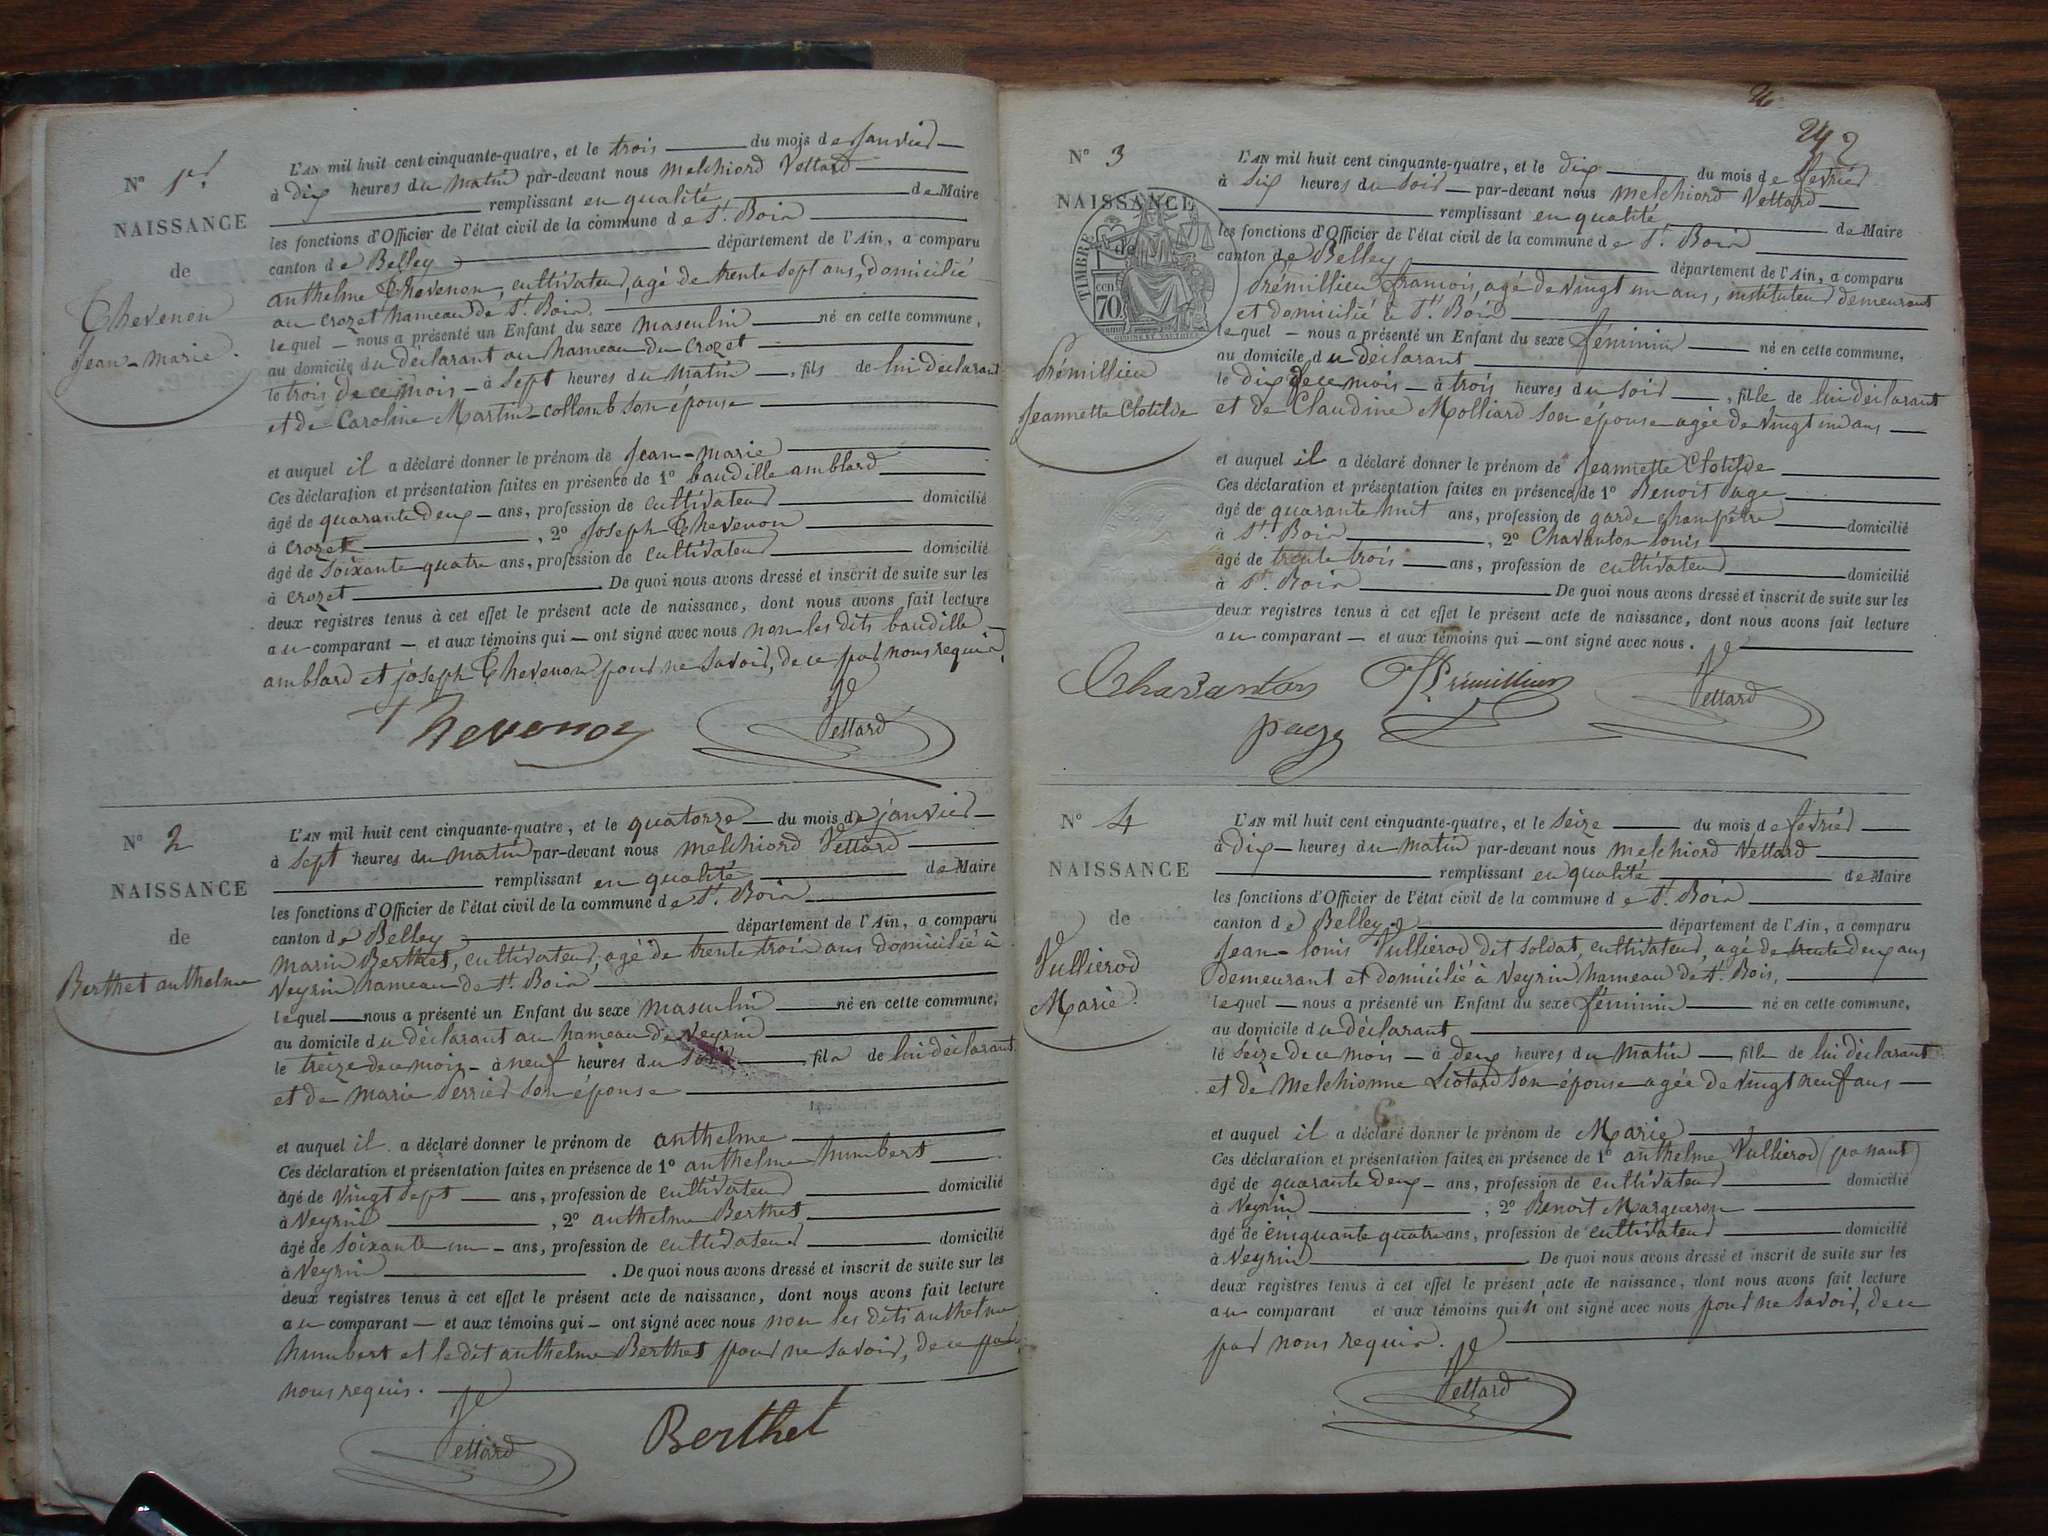 N° 1er.
NAISSANCE
de
Thevenon
Jean-marie.
L'AN mil huit cent cinquante-quatre, et le trois du mois de Janvier
à dix heures du matin par-devant nous melchiord Vettard
remplissant en qualité de Maire
les fonctions d'Officier de l'état civil de la commune de St. Bois
canton de Belley département de l'Ain, a comparu
anthelme Thevenon, cultivateur, agé de trente sept ans, domicilié
au crozet hameau de St. Bois.
lequel — nous a présenté un Enfant du sexe masculin né en cette commune,
au domicile du déclarant au hameau du Crozet
le trois de ce mois — à sept heures du matin, fils de lui déclarant
et de Caroline Martin-collomb son épouse
et auquel il a déclaré donner le prénom de Jean-marie
Ces déclaration et présentation faites en présence de 1° baudille amblard
âgé de quarante deux — ans, profession de cultivateur domicilié
à crozet, 2° Joseph Thevenon
âgé de soixante quatre ans, profession de cultivateur domicilié
à crozet De quoi nous avons dressé et inscrit de suite sur les
deux registres tenus à cet effet le présent acte de naissance, dont nous avons fait lecture
au comparant — et aux témoins qui — ont signé avec nous non les dits baudille
amblard et joseph Thevenon pour ne savoir, de ce par nous requis.
Thevenon Vettard
N° 2
NAISSANCE
de
Berthet anthelme
L'AN mil huit cent cinquante-quatre, et le quatorze — du mois de janvier
à sept heures du matin par-devant nous melchiord Vettard
remplissant en qualité de Maire
les fonctions d'Officier de l'état civil de la commune de St. Bois
canton de Belley département de l'Ain, a comparu
Marin Berthet, cultivateur, agé de trente trois ans domicilié à
Veyrin hameau de St. Bois
lequel — nous a présenté un Enfant du sexe masculin né en cette commune,
au domicile du déclarant au hameau de Veyrin
le treize de ce mois — à neuf heures du soir, fils de lui déclarant
et de marie Perrier son épouse
et auquel il a déclaré donner le prénom de anthelme
Ces déclaration et présentation faites en présence de 1° anthelme humbert
âgé de vingt sept — ans, profession de cultivateur domicilié
à Veyrin, 2° anthelme Berthet
âgé de soixante un — ans, profession de cultivateur domicilié
à Veyrin. De quoi nous avons dressé et inscrit de suite sur les
deux registres tenus à cet effet le présent acte de naissance, dont nous avons fait lecture
au comparant — et aux témoins qui — ont signé avec nous non les dits anthelme
humbert et le dit anthelme Berthet pour ne savoir, de ce par
nous requis.
Vettard Berthet
242
N° 3
NAISSANCE
de
TIMBRE
70 cent
Prémillieu
Jeannette Clotilde
L'AN mil huit cent cinquante-quatre, et le dix du mois de fevrier
à six heures du soir — par-devant nous melchiord Vettard
remplissant en qualité de Maire
les fonctions d'Officier de l'état civil de la commune de St. Bois
canton de Belley département de l'Ain, a comparu
Prémillieu françois, agé de vingt un ans, instituteur demeurant
et domicilié à St. Bois
lequel — nous a présenté un Enfant du sexe féminin né en cette commune,
au domicile du déclarant
le dix de ce mois — à trois heures du soir, fille de lui déclarant
et de Claudine Molliard son épouse agée de vingt un ans
et auquel il a déclaré donner le prénom de Jeannette Clotilde
Ces déclaration et présentation faites en présence de 1° Benoit page
âgé de quarante huit ans, profession de garde champêtre domicilié
à St. Bois, 2° Chavanton louis
âgé de trente trois — ans, profession de cultivateur domicilié
à St. Bois De quoi nous avons dressé et inscrit de suite sur les
deux registres tenus à cet effet le présent acte de naissance, dont nous avons fait lecture
au comparant — et aux témoins qui — ont signé avec nous.
Chavanton Prémillieu Vettard
page
N° 4
NAISSANCE
de
Vullierod
Marie.
L'AN mil huit cent cinquante-quatre, et le seize du mois de fevrier
à dix — heures du matin par-devant nous melchiord Vettard
remplissant en qualité de Maire
les fonctions d'Officier de l'état civil de la commune de St. Bois
canton de Belley département de l'Ain, a comparu
Jean-louis Vullierod dit soldat, cultivateur, agé de trente deux ans
demeurant et domicilié à Veyrin hameau de St. Bois,
lequel — nous a présenté un Enfant du sexe féminin né en cette commune,
au domicile du déclarant
le seize de ce mois — à deux heures du matin — fille de lui déclarant
et de Melchionne Liotard son épouse agée de vingt neuf ans
et auquel il a déclaré donner le prénom de Marie
Ces déclaration et présentation faites en présence de 1° anthelme Vullierod
âgé de quarante deux — ans, profession de cultivateur domicilié
à Veyrin, 2° Benoit Margueron
âgé de cinquante quatre ans, profession de cultivateur domicilié
à Veyrin De quoi nous avons dressé et inscrit de suite sur les
deux registres tenus à cet effet le présent acte de naissance, dont nous avons fait lecture
au comparant et aux témoins qui n ont signé avec nous pour ne savoir, de ce
par nous requis.
Vettard